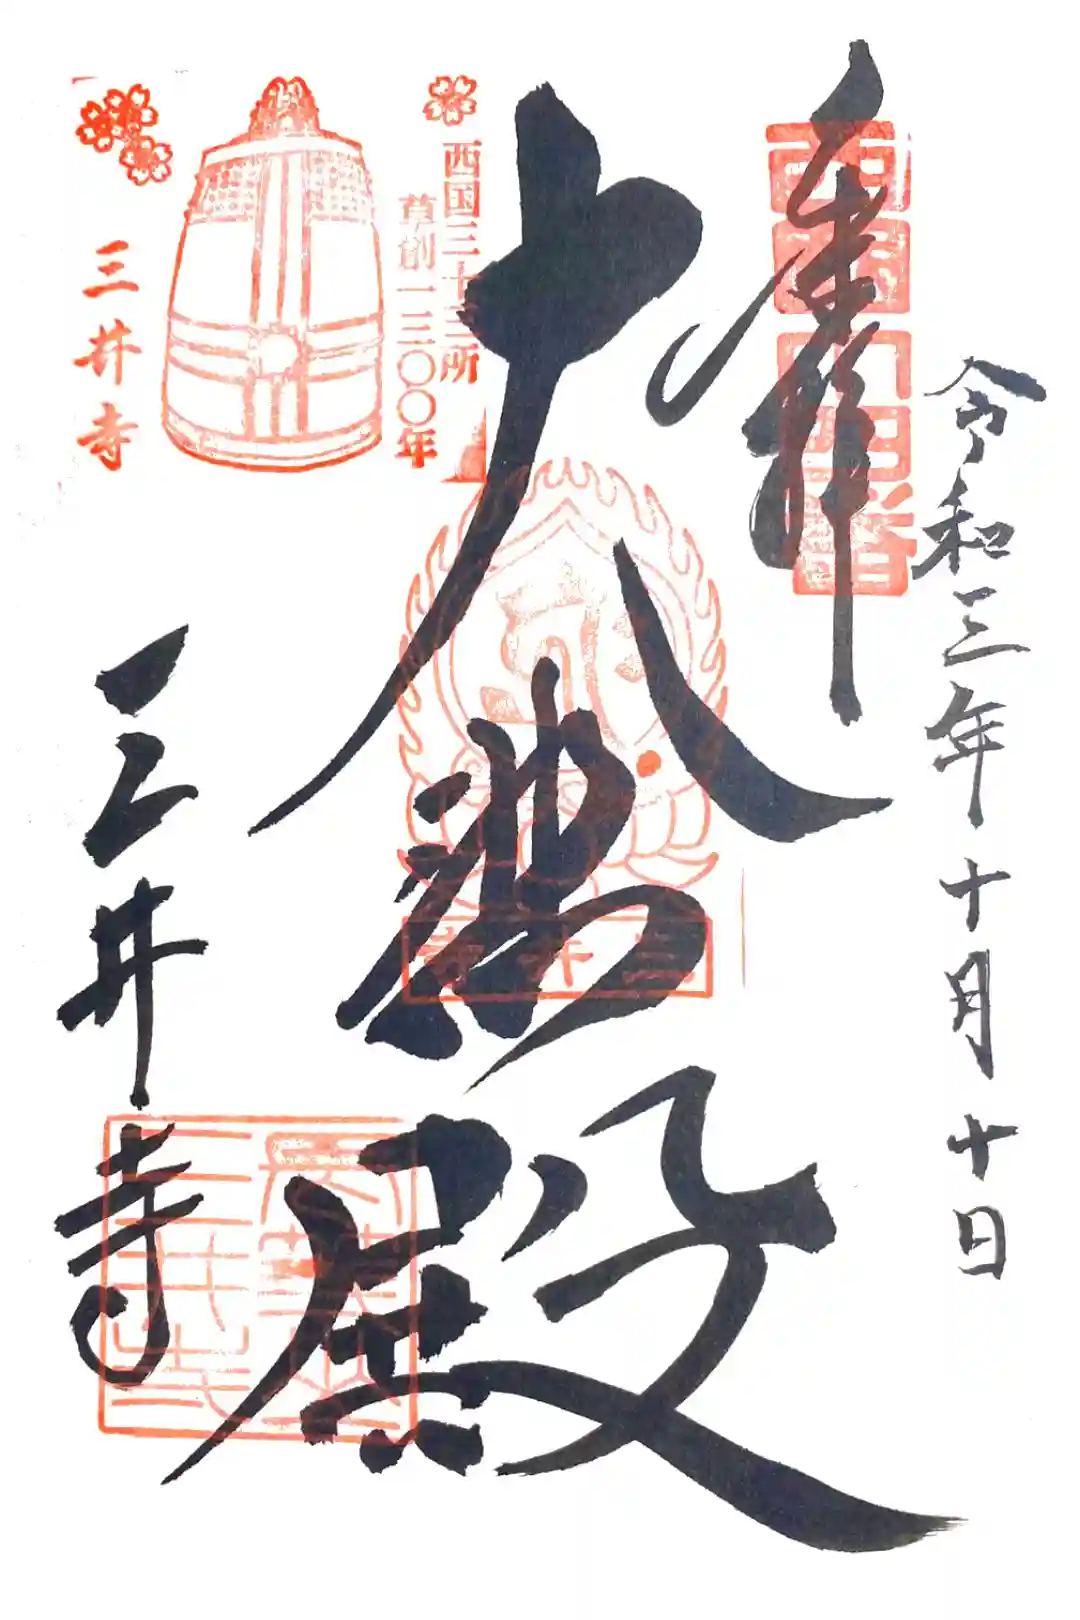 奉拝
西国十四番
令和三年十月十日
大悲殿
三井寺
西国三十三所
草創一三〇〇年
三井寺
三井寺